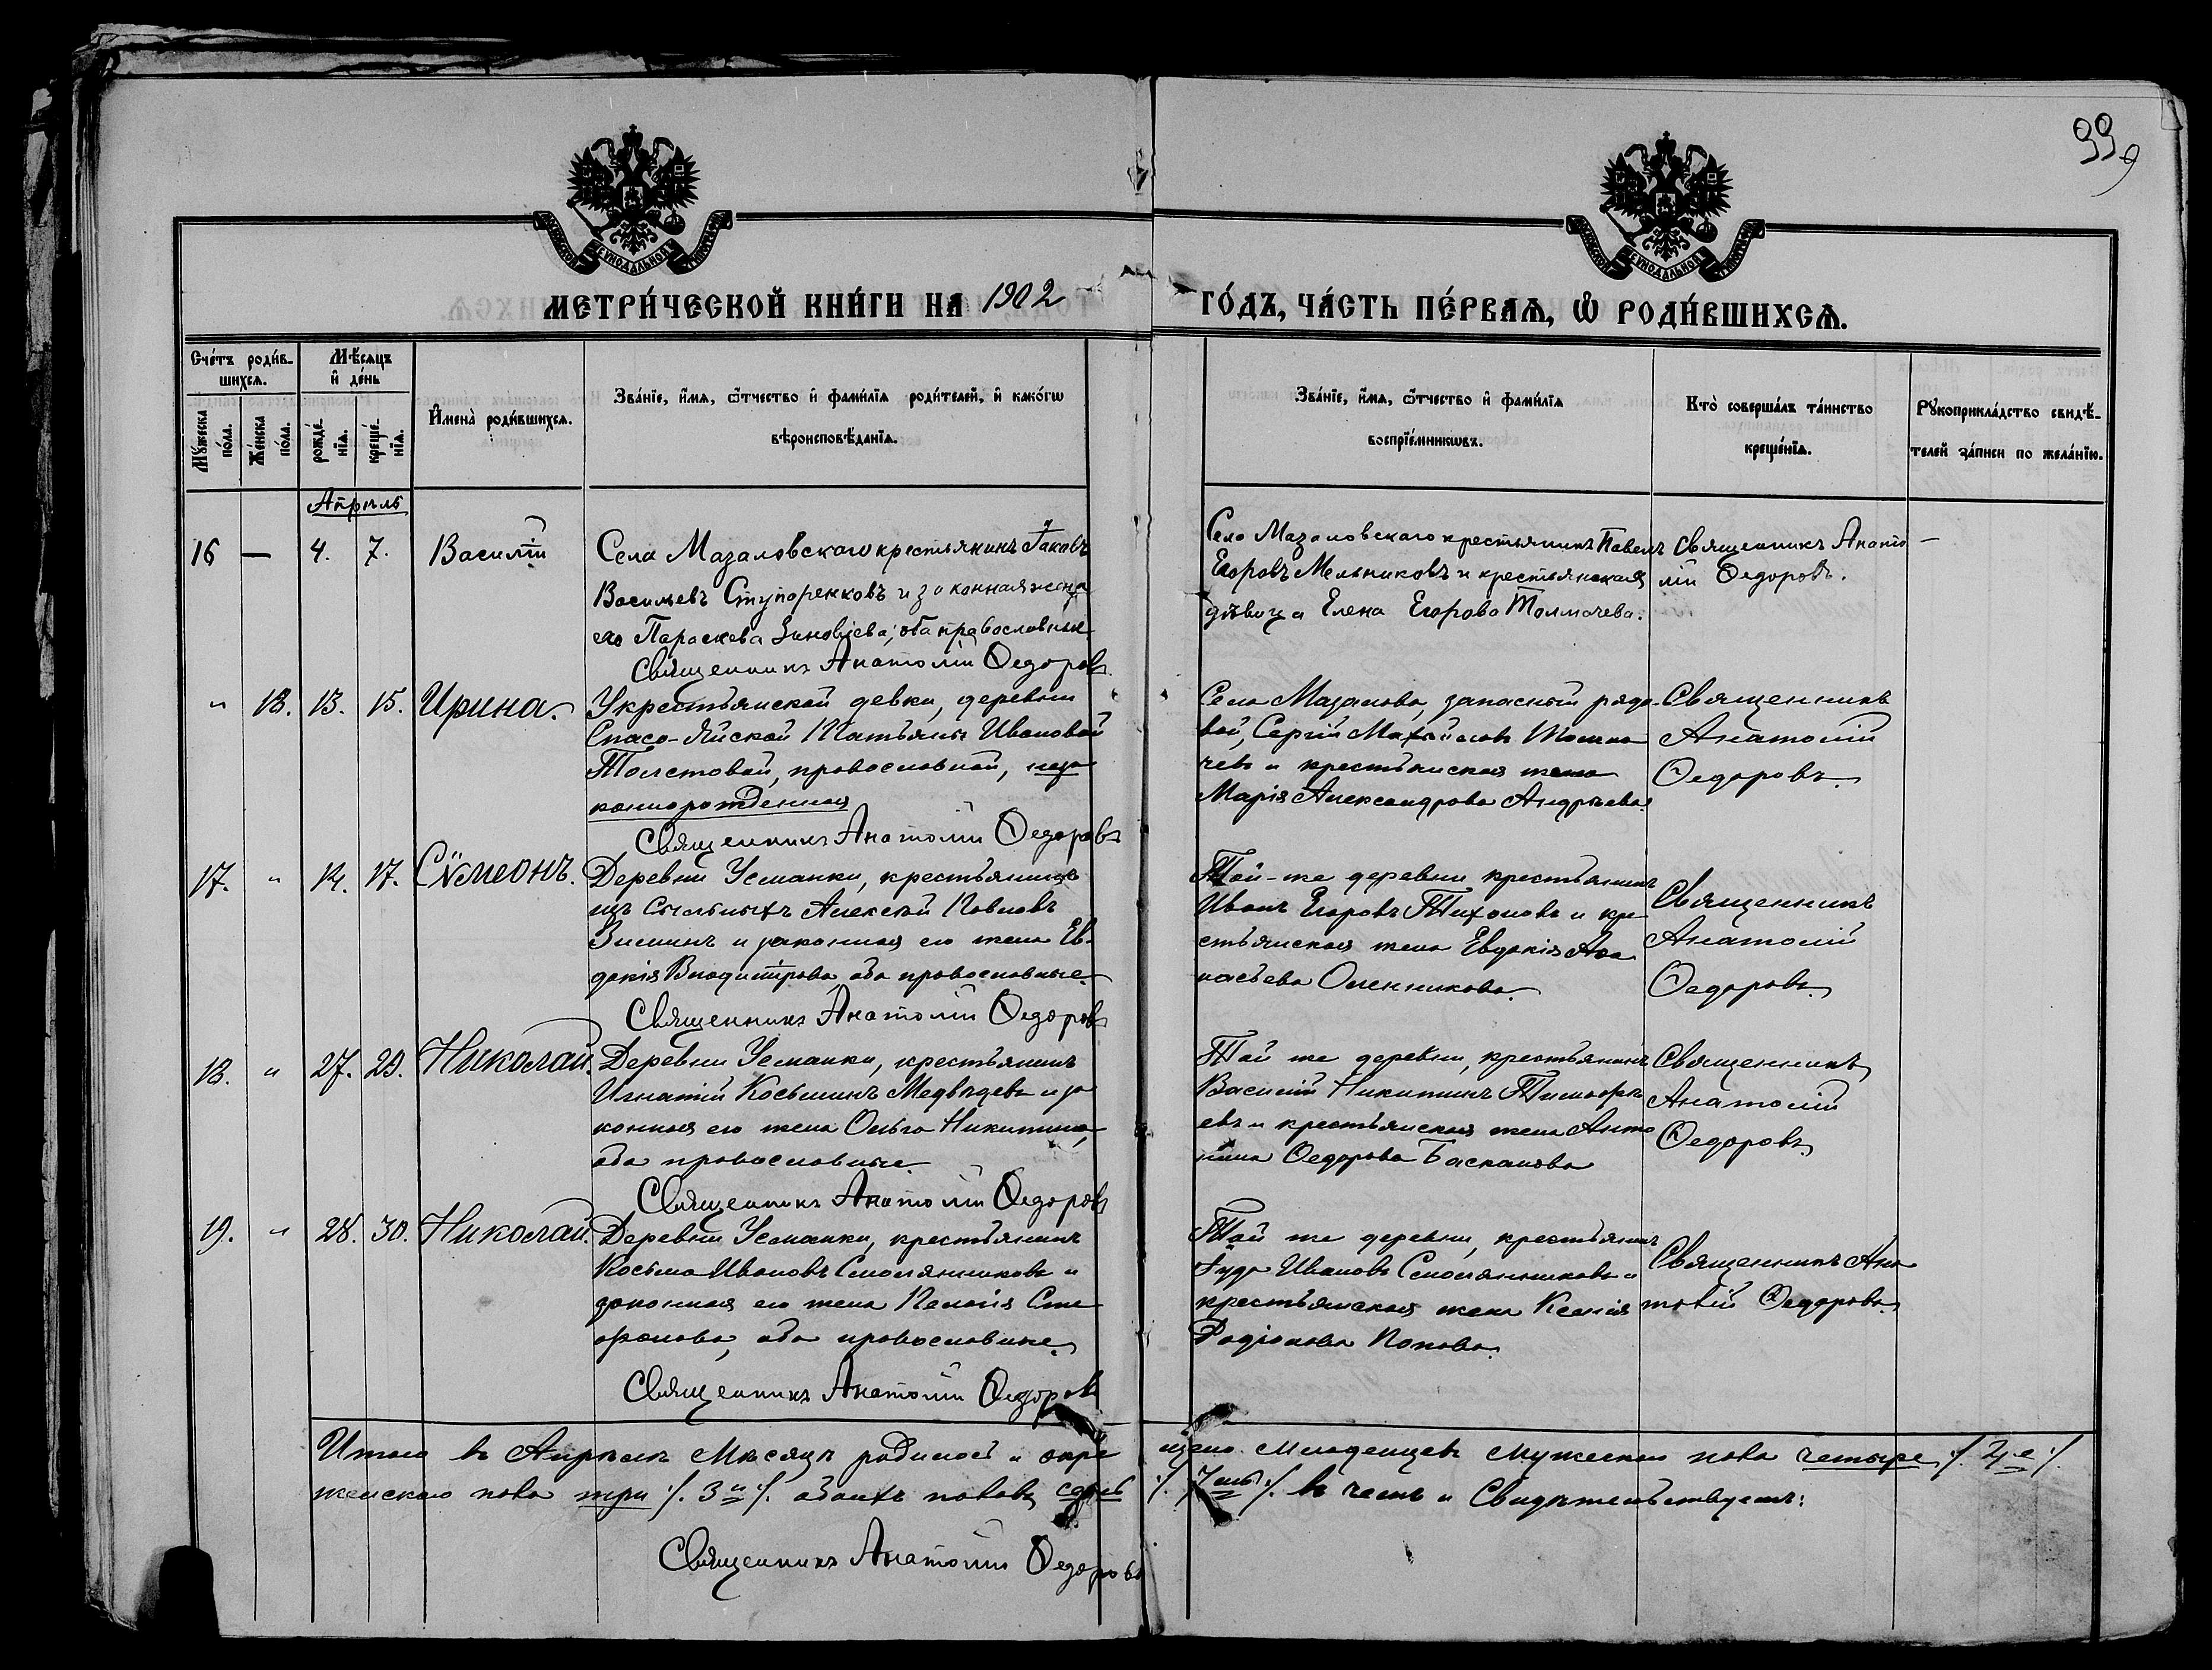 99
СѴНОДАЛЬНОЙ
СѴНОДАЛЬНОЙ
МЕТРИ́ЧЕСКОЙ КНИ́ГИ НА 1902
ГО́ДЪ, ЧА́СТЬ ПЕ́РВАѦ, Ѡ РОДИ́ВШИХСѦ.
Сче́тъ роди́в-
шихсѧ.
Мꙋ́жеска по́ла.
Же́нска по́ла.
Мѣ́сѧцъ и де́нь
рожде́-нїѧ.
креще́-нїѧ.
Имена̀ роди́вшихсѧ.
Зва́нїе, и́мѧ, ѻ́тчество и фами́лїѧ роди́телей, и како́гѡ
вѣроисповѣ́данїѧ.
Зва́нїе, и́мѧ, ѻ́тчество и фами́лїѧ
воспрїе́мникѡвъ.
Кто̀ соверша́лъ та́инство
креще́нїѧ.
Рꙋкоприкла́дство свидѣ́-
телей за́писи по жела́нїю.
Апрѣль
16 — 4. 7. Василій
Села Мазаловскаго крестьянинъ Іаковъ
Васильевъ Ступоренковъ и законная жена
его Параскева Зиновіева; оба православные
Священникъ Анатолій Ѳедоровъ
Село Мазаловскаго крестьянинъ Павелъ
Егоровъ Мельниковъ и крестьянская
дѣвица Елена Егорова Толмачева.
Священникъ Анато
лій Ѳедоровъ.
—
" 18. 13. 15. Ирина.
У крестьянской девки, деревни
Спасо-Яйской Татьяны Ивановой
Толстовой, православной, неза
коннорожденная
Священникъ Анатолій Ѳедоровъ
Села Мазалова, запасный рядо-
вой, Сергій Михайловъ Толма
чевъ и крестьянская жена
Марія Александрова Андрѣева.
Священникъ
Анатолій
Ѳедоровъ.
17. " 14. 17. Сѵмеонъ.
Деревни Усманки, крестьянинъ
изъ ссыльныхъ Алексѣй Павловъ
Зиминъ и законная его жена Ев-
докія оба православные.
Священникъ Анатолій Ѳедоровъ
Той-же деревни крестьянинъ
Иванъ Егоровъ Тихоновъ и кре
стьянская жена Евдокія Аѳа
насьева Оленникова.
Священникъ
Анатолій
Ѳедоровъ.
18. " 27. 29. Николай.
Деревни Усманки, крестьянинъ
Игнатій Косьминъ Медвѣдевъ и за
конная его жена Ольга Никитина,
оба православные.
Священникъ Анатолій Ѳедоровъ
Той же деревни, крестьянинъ
Василій Никитинъ Тимоѳе
евъ и крестьянская жена Анто
нина Ѳедорова Баскакова
Священникъ
Анатолій
Ѳедоровъ.
19. " 28. 30. Николай.
Деревни Усманки, крестьянинъ
Косьма Ивановъ Смолянниковъ и
законная его жена Пелагія Сте
фанова, оба православные.
Священникъ Анатолій Ѳедоровъ
Той же деревни, крестьянинъ
Іуда Ивановъ Смолянниковъ и
крестьянская жена Ксенія
Родіонова Попова.
Священникъ Ана
толій Ѳедоровъ.
Итого въ Апрѣлѣ мѣсяцѣ родилось и окре
щено младенцевъ мужеска пола четыре /. 4е ./.
женскаго пола три ./. 3и ./. обоихъ половъ седмь
./. 7мь ./. въ чемъ и Свидѣтельствуетъ:
Священникъ Анатолій Ѳедоровъ